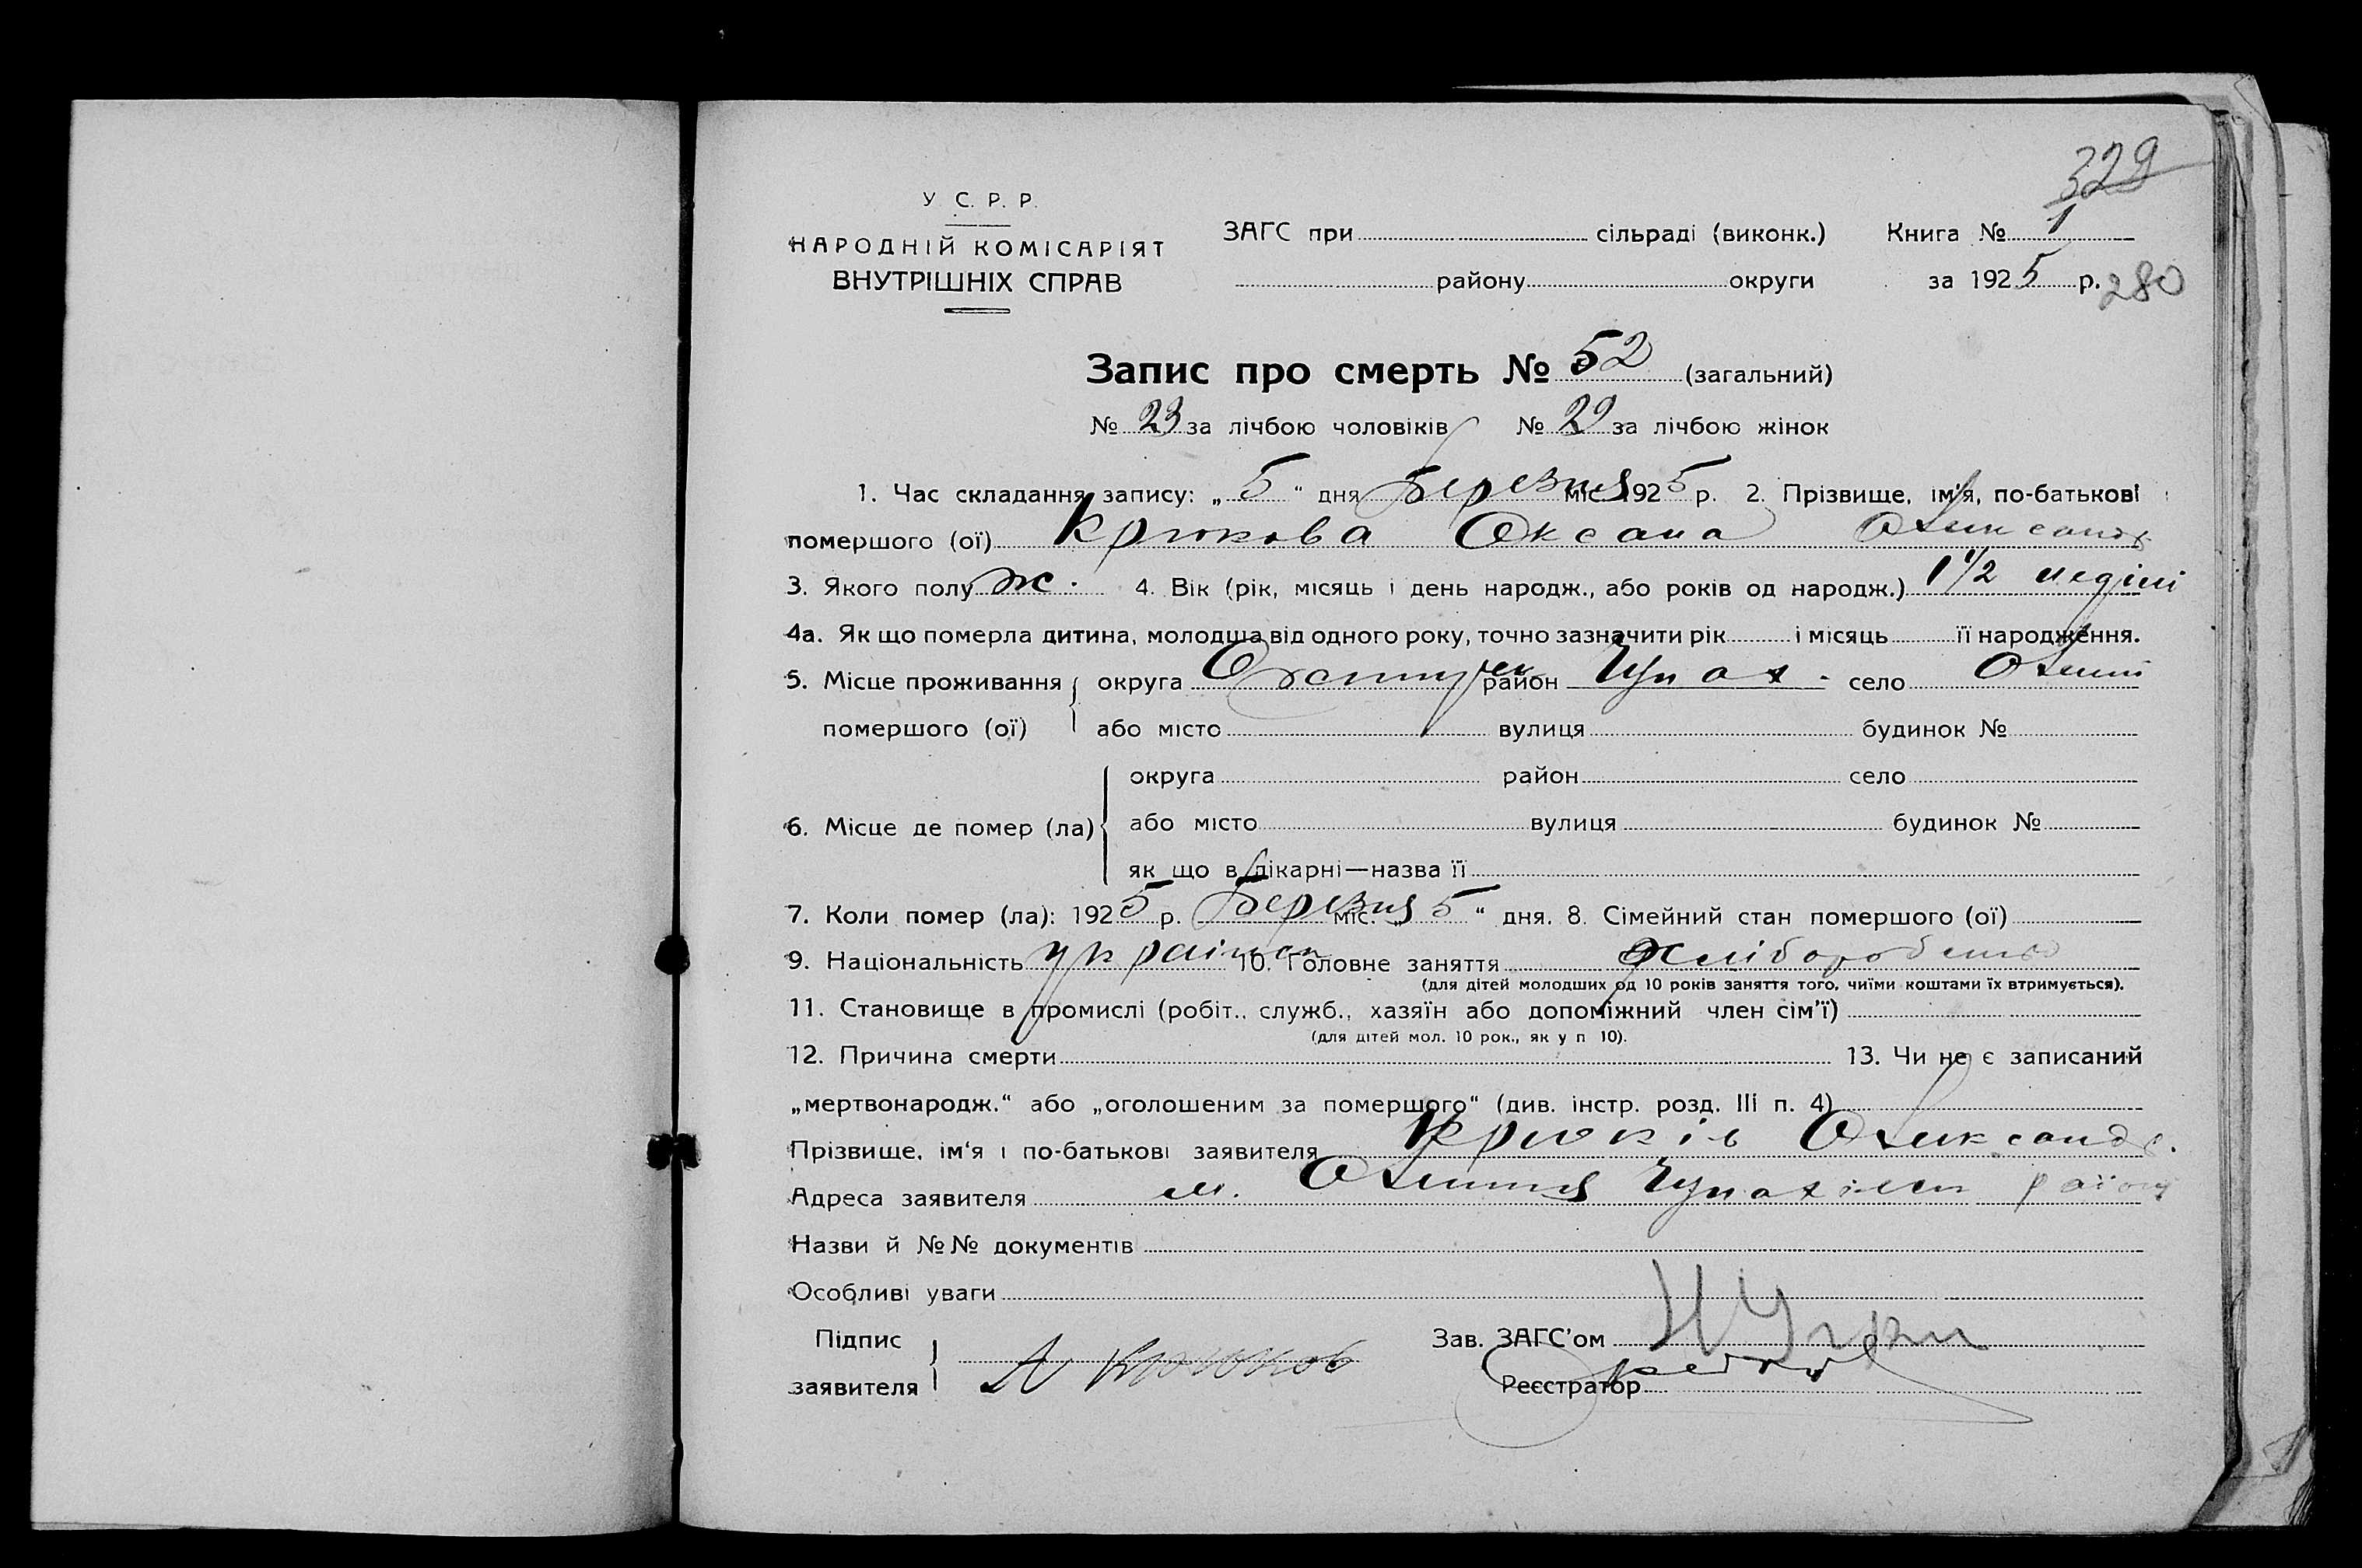 329
У С. Р. Р.
НАРОДНІЙ КОМІСАРІЯТ
ВНУТРІШНІХ СПРАВ
ЗАГС при сільраді (виконк.) Книга № 1
району округи за 1925 р. 280
Запис про смерть № 52 (загальний)
№ 23 за лічбою чоловіків № 29 за лічбою жінок
1. Час складання запису: „5“ дня Березня міс. 1925 р. 2. Прізвище, ім'я, по-батькові
помершого (ої) Крюкова Оксана Олександ.
3. Якого полу ж. 4. Вік (рік, місяць і день народж., або років од народж.) 1 1/2 неділі
4а. Як що померла дитина, молодша від одного року, точно зазначити рік і місяць її народження.
5. Місце проживання округа Охтирк район Чупах. село Олешні
помершого (ої) або місто вулиця будинок №
округа район село
6. Місце де помер (ла) або місто вулиця будинок №
як що в лікарні—назва її
7. Коли помер (ла): 1925 р. Березня міс. „5“ дня. 8. Сімейний стан помершого (ої)
9. Національність україн 10. Головне заняття хлібороб
(для дітей молодших од 10 років заняття того, чиїми коштами їх втримується).
11. Становище в промислі (робіт., служб., хазяїн або допоміжний член сім'ї)
(для дітей мол. 10 рок., як у п 10).
12. Причина смерти 13. Чи не є записаний
„мертвонародж.“ або „оголошеним за помершого“ (див. інстр. розд. III п. 4)
Прізвище, ім'я і по-батькові заявителя Крюків Олександр.
Адреса заявителя м. Олешня Чупахівск району
Назви й №№ документів
Особливі уваги
Підпис Зав. ЗАГС'ом
заявителя А Крюков Реєстратор